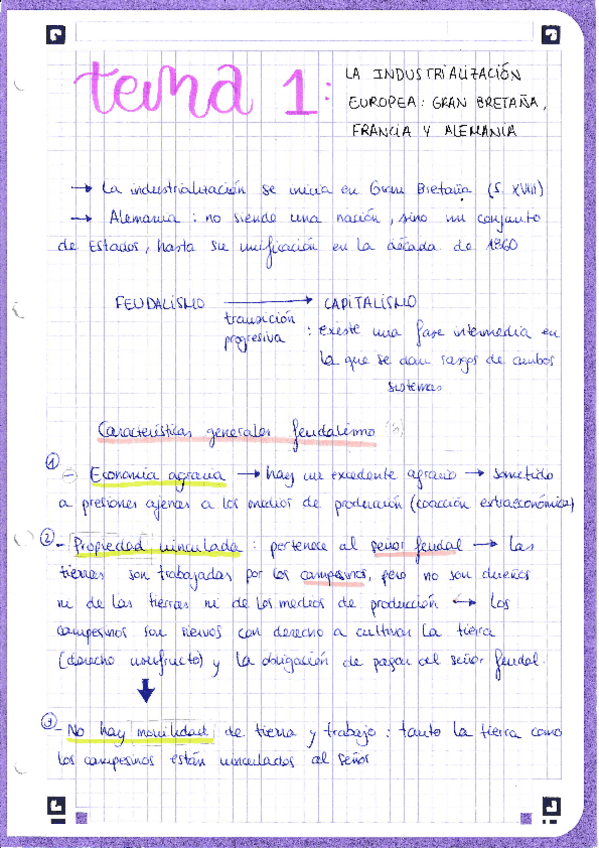 tema 1:
LA INDUSTRIALIZACIÓN
EUROPEA: GRAN BRETAÑA,
FRANCIA Y ALEMANIA
→ La industrialización se inicia en Gran Bretaña (S. XVIII)
→ Alemania: no siendo una nación, sino un conjunto
de Estados, hasta su unificación en la década de 1860
FEUDALISMO → CAPITALISMO
transición
progresiva
: existe una fase intermedia en
la que se dan rasgos de ambos
sistemas
Características generales feudalismo (3)
① - Economía agraria → hay un excedente agrario → sometido
a presiones ajenas a los medios de producción (coacción extraeconómica)
② - Propiedad vinculada: pertenece al señor feudal → Las
tierras son trabajadas por los campesinos, pero no son dueños
ni de las tierras ni de los medios de producción ↔ los
campesinos son siervos con derecho a cultivar la tierra
(derecho usufructo) y la obligación de pagar al señor feudal.
③ - No hay movilidad de tierra y trabajo: tanto la tierra como
los campesinos están vinculados al señor